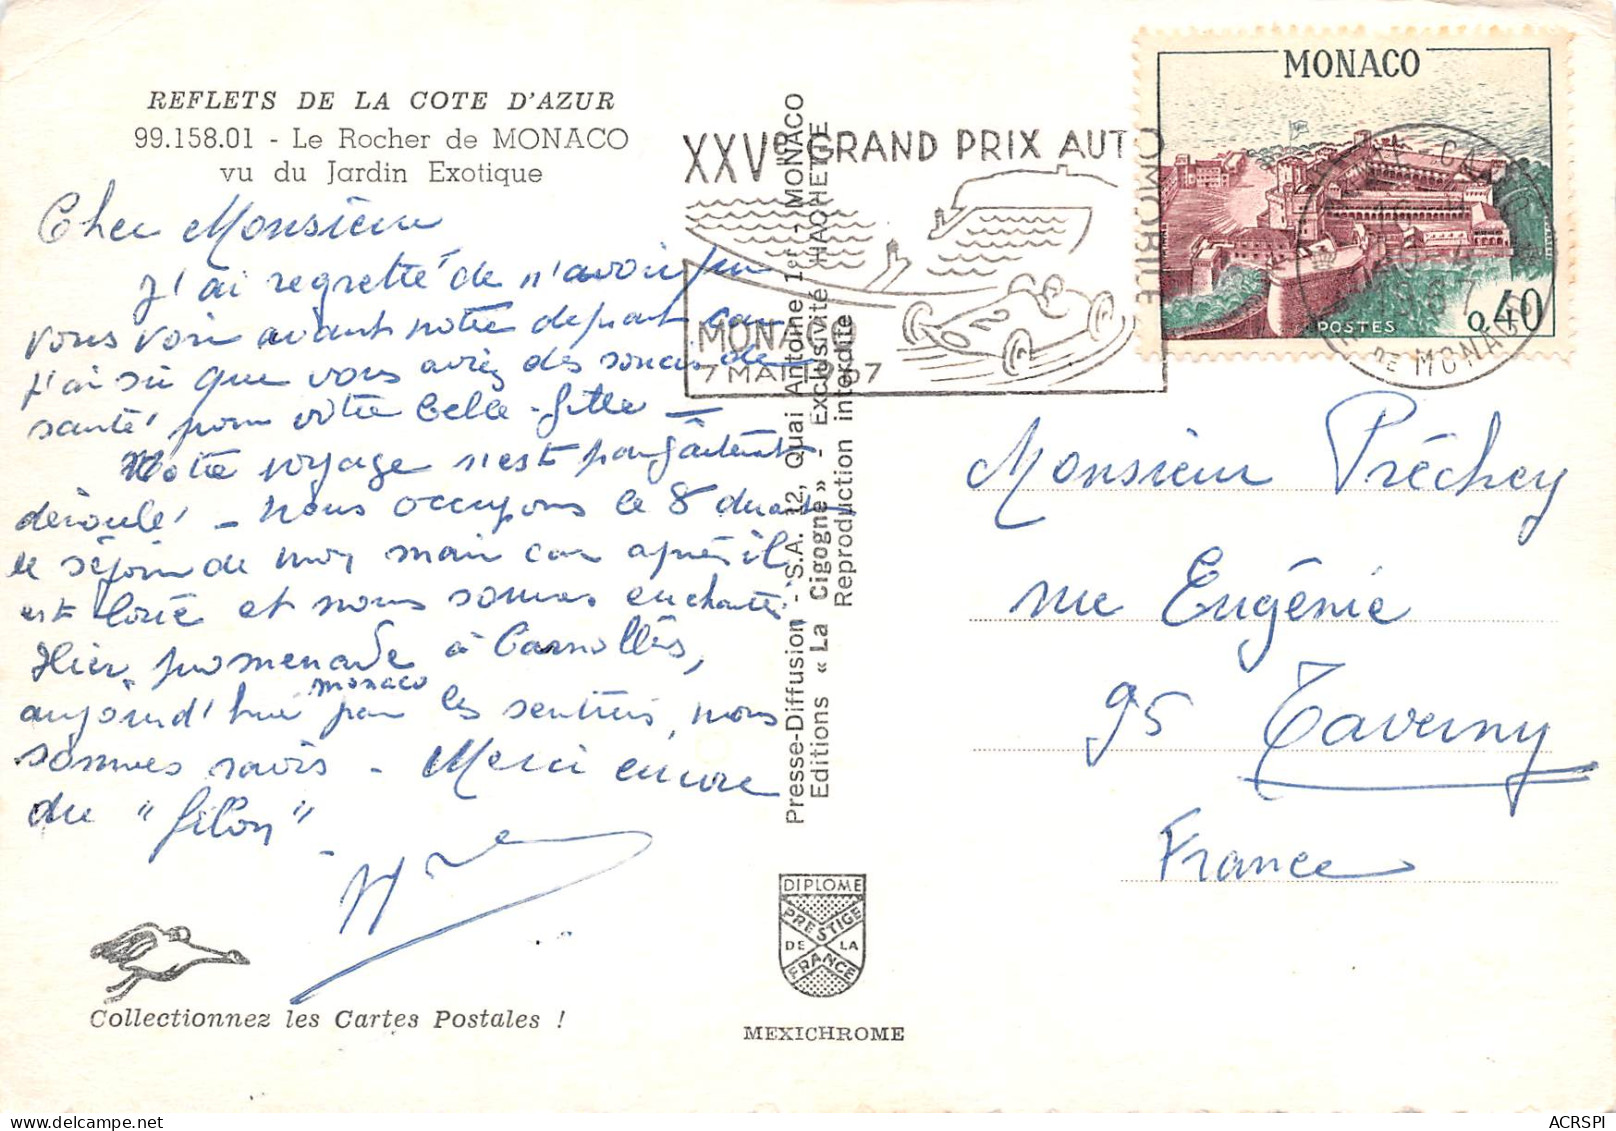 REFLETS DE LA COTE D'AZUR
99.158.01 - Le Rocher de MONACO
vu du Jardin Exotique
Cher Monsieur
J'ai regretté de n'avoir pu
vous voir avant notre départ car
j'ai su que vous aviez des soucis de
santé pour votre belle-fille —
Notre voyage n'est parfaitement
déroulé - Nous occupons le 8 durant
le séjour de mon mari car après il
est loué et nous sommes enchantés
Hier, promenade à Carnolès,
aujourd'hui Monaco par les sentiers, nous
sommes ravis - Merci encore
du "filon"
Collectionnez les Cartes Postales !
Presse-Diffusion - S.A. 12, Quai Antoine 1er - MONACO
Editions « La Cigogne » - Exclusivité HACHETTE
Reproduction interdite
DIPLOME
PRESTIGE
DE LA
FRANCE
MEXICHROME
XXVe GRAND PRIX AUTOMOBILE
MONACO
7 MAI 1967
MONACO
POSTES
0,40
1967
DE MONACO
Monsieur Préchey
rue Eugénie
95 Taverny
France
ACRSPI